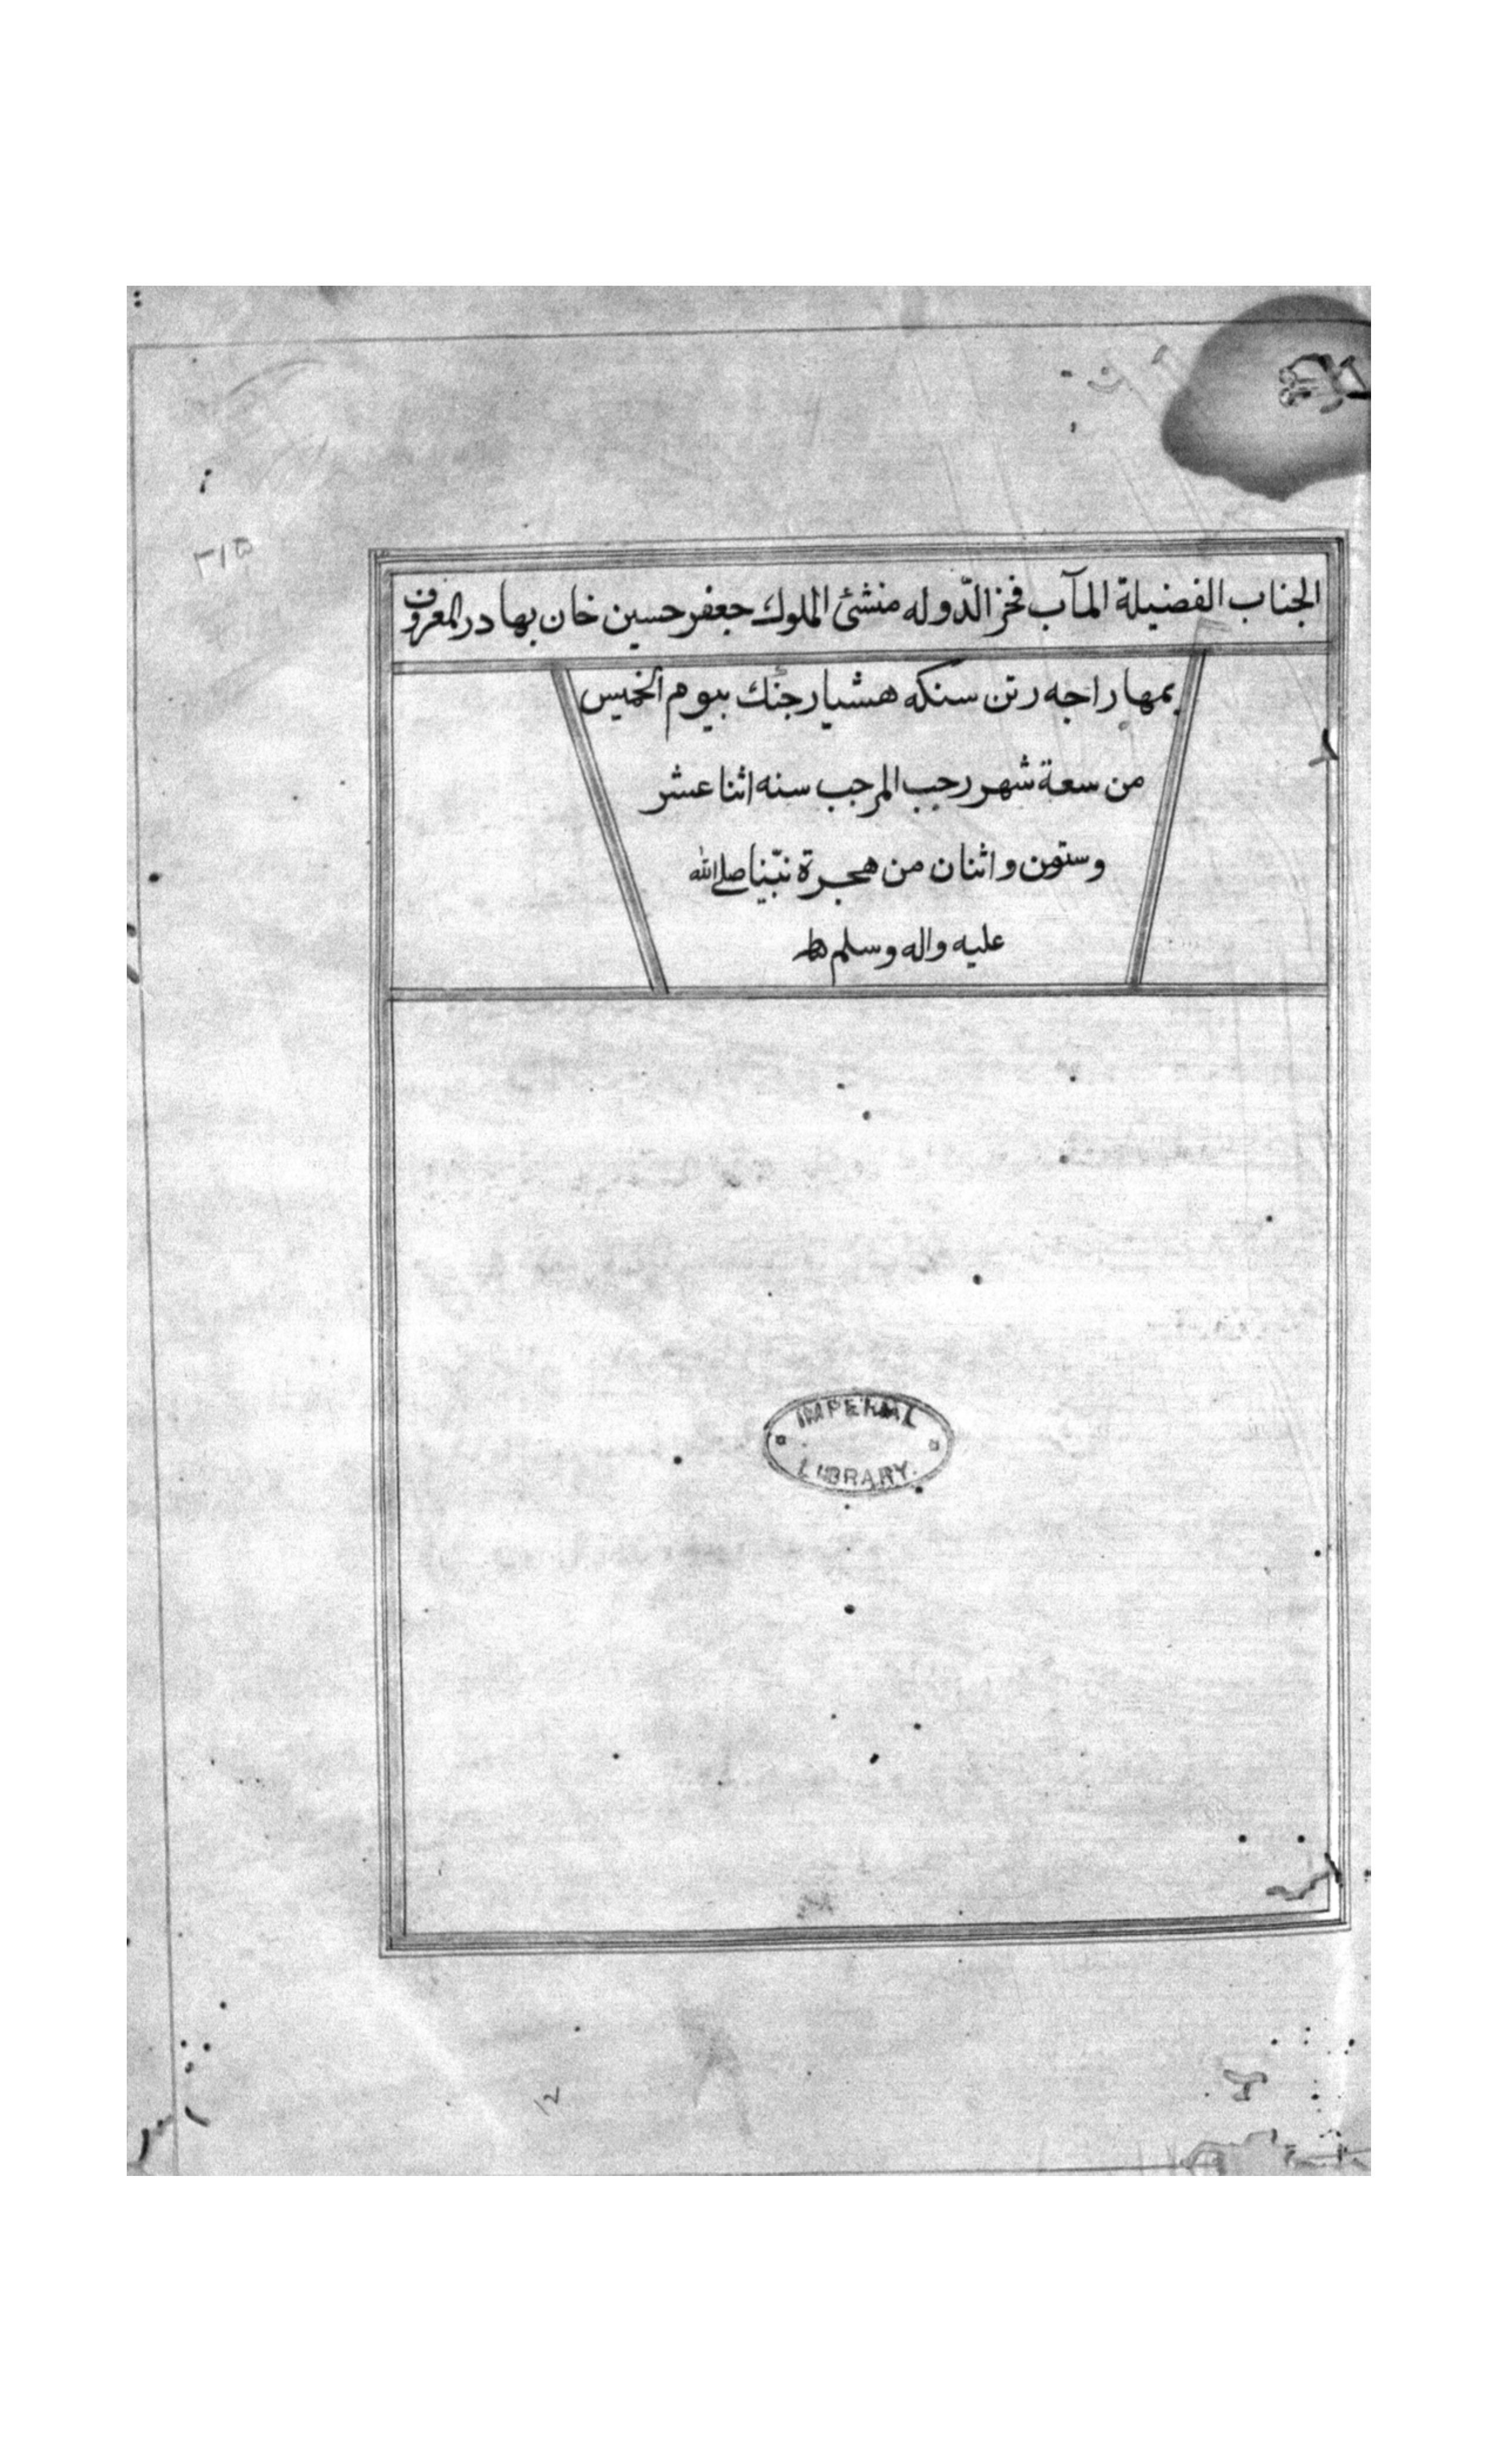 ٣١٥
الجناب الفضيلة المآب فخر الدّوله منشئ الملوك جعفر حسين خان بهادر المعروف
بمهاراجه رتن سنكه هشيار جنك بيوم الخميس
من سعة شهر رجب المرجب سنه اثنا عشر
وستون واثنان من هجرة نبّينا صلى الله
عليه واله وسلم
IMPERIAL
LIBRARY.
١٢